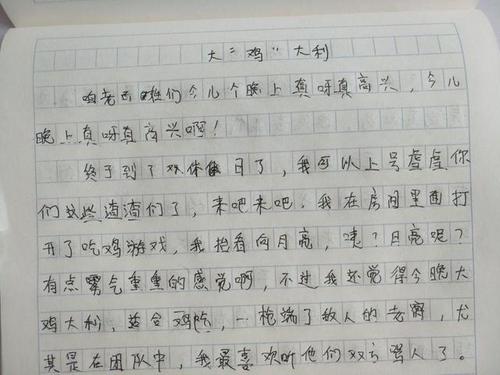 大“鸡”大利
咱老百姓们今儿个晚上真呀真高兴,今儿
晚上真呀真高兴啊!
终于到了双休日了,我可以上号虐虐你
们这些渣渣们了,来吧来吧。我在房间里面打
开了吃鸡游戏,我抬看向月亮,咦?月亮呢?
有点雾气重重的感觉啊,不过我还觉得今晚大
鸡大利,适合鸡吃,一枪端了敌人的老窝,尤
其是在团队中,我最喜欢听他们双方骂人了。